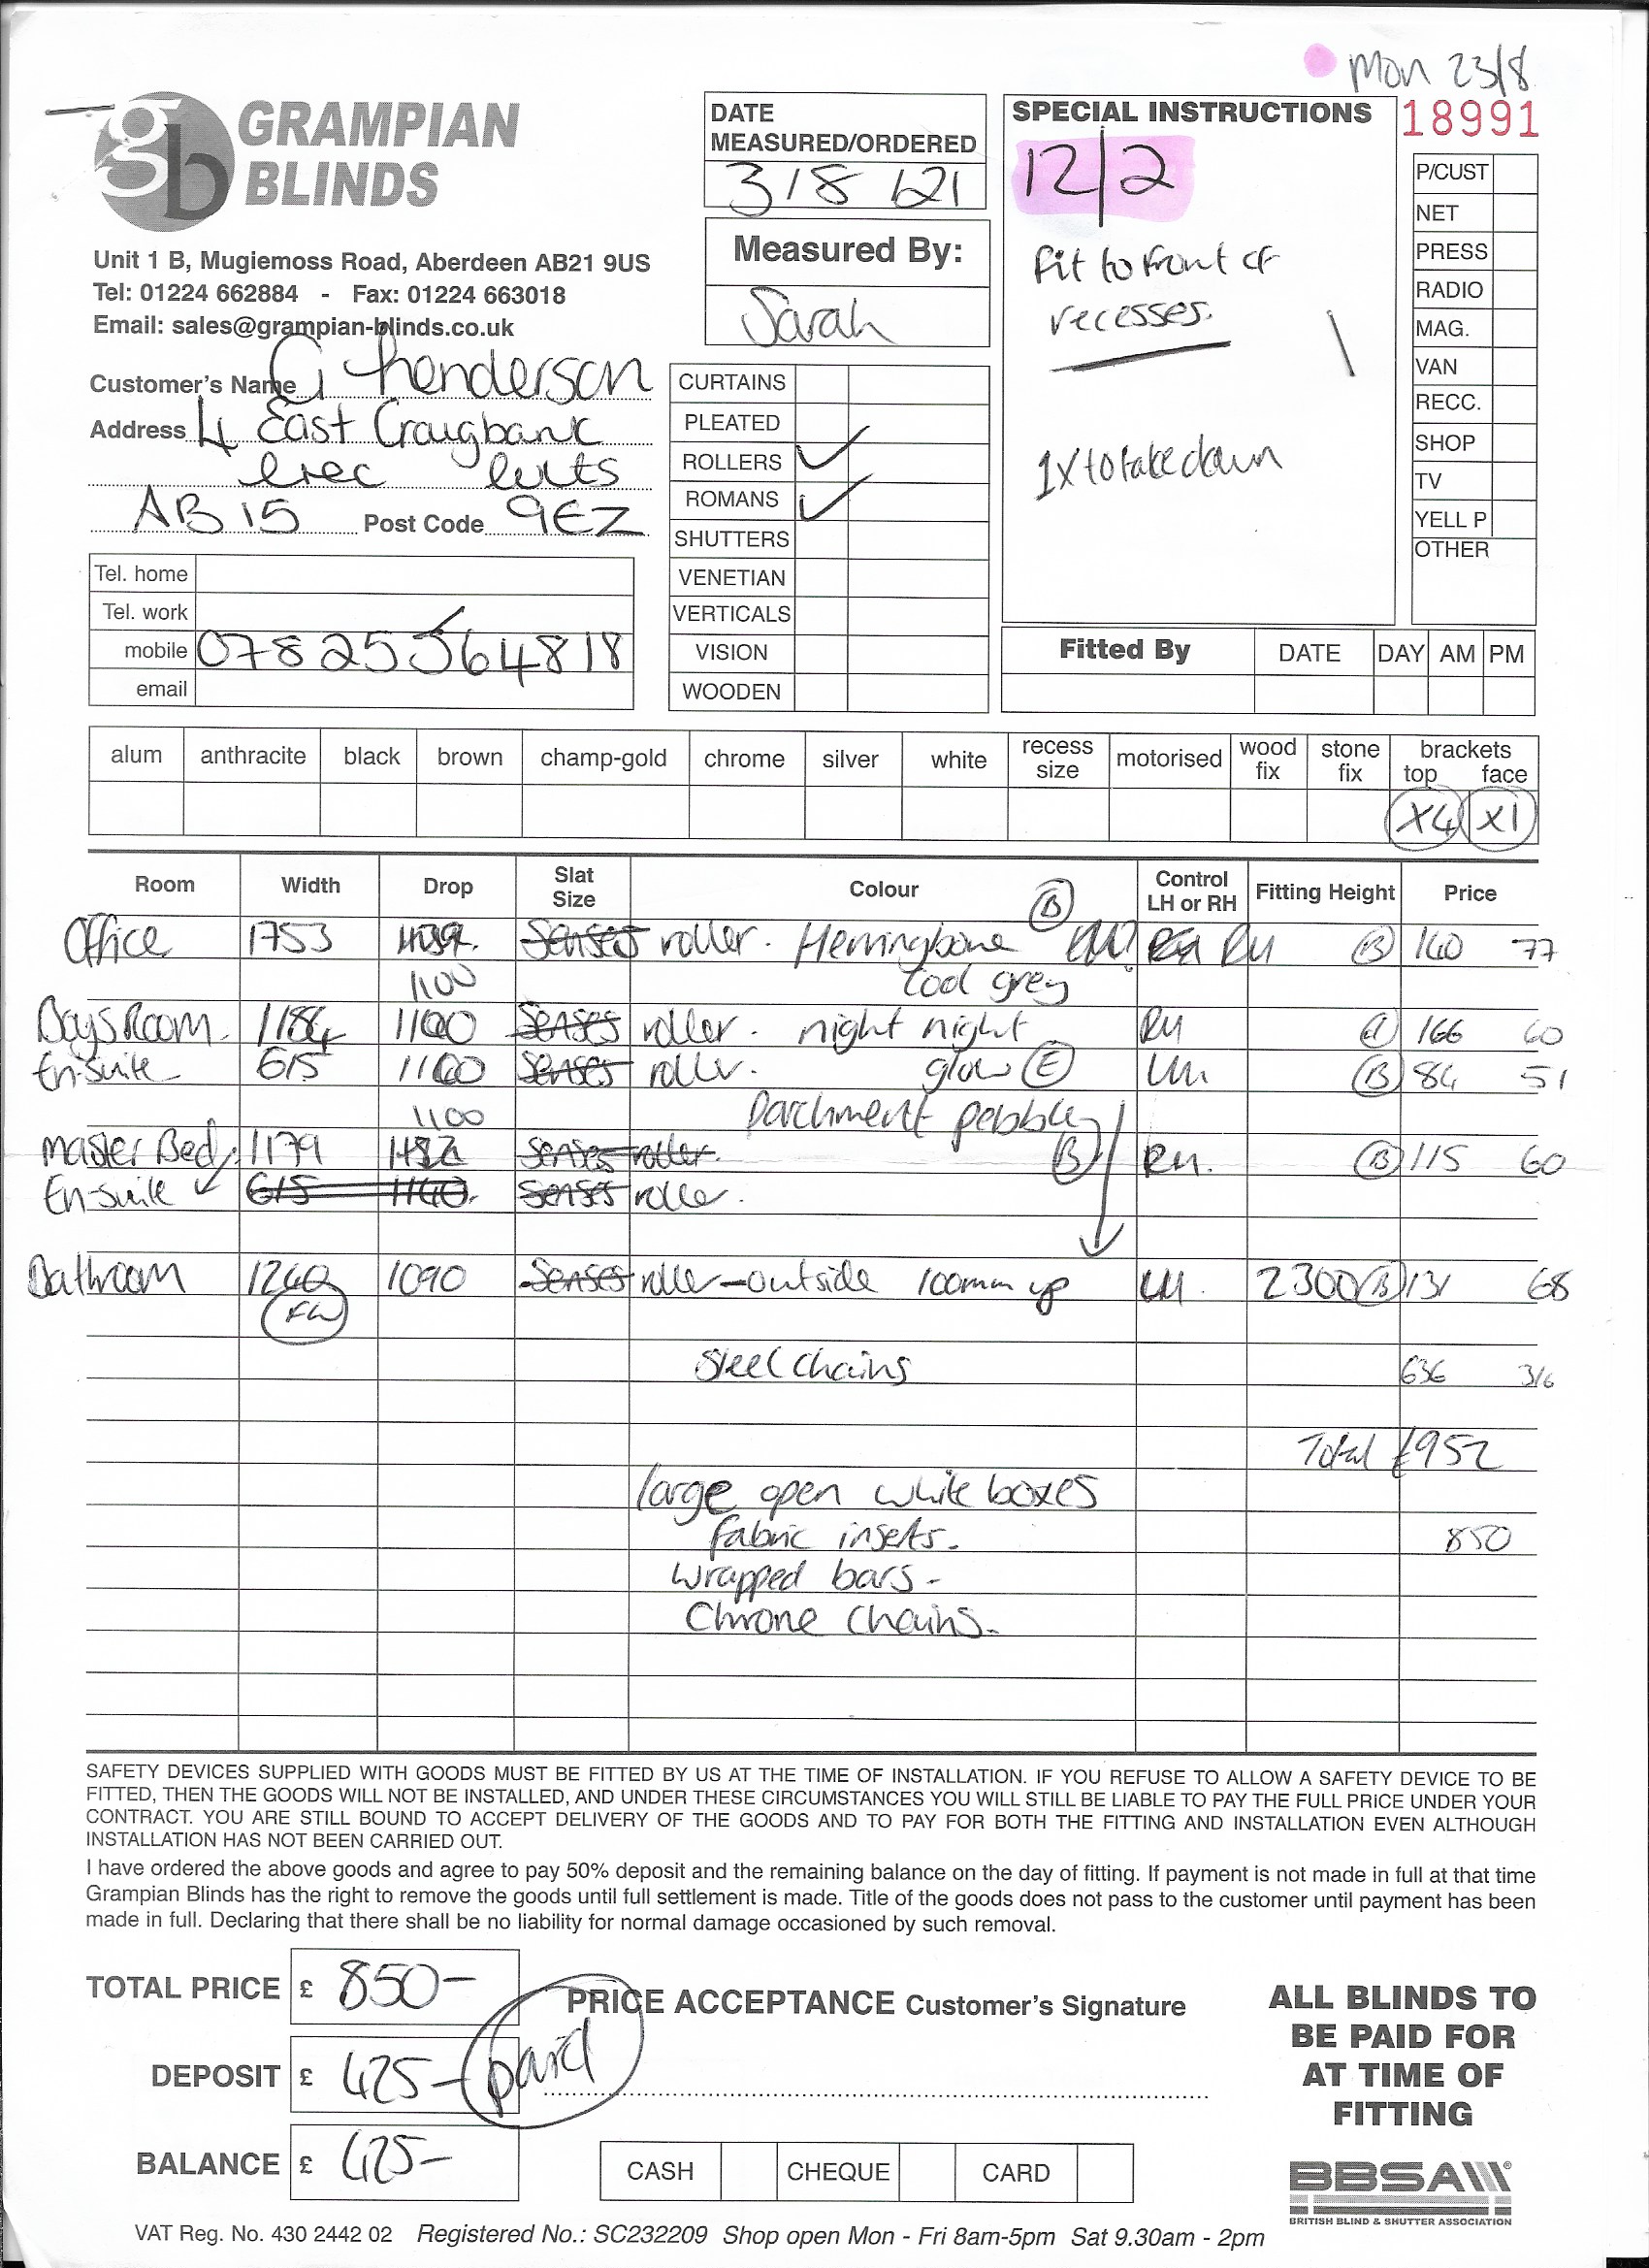 Mon 23/8
GRAMPIAN
BLINDS
Unit 1 B, Mugiemoss Road, Aberdeen AB21 9US
Tel: 01224 662884 - Fax: 01224 663018
Email: sales@grampian-blinds.co.uk
Customer's Name G Henderson
Address 4 East Craigbank
Cults
AB15 Post Code 9EZ
Tel. home
Tel. work
mobile 07825564818
email
DATE
MEASURED/ORDERED
3/8/21
Measured By:
Sarah
CURTAINS
PLEATED
ROLLERS ✓
ROMANS ✓
SHUTTERS
VENETIAN
VERTICALS
VISION
WOODEN
SPECIAL INSTRUCTIONS
12/2
fit to front of
recesses.
1x to take down
18991
P/CUST
NET
PRESS
RADIO
MAG.
VAN
RECC.
SHOP
TV
YELL P
OTHER
Fitted By DATE DAY AM PM
alum anthracite black brown champ-gold chrome silver white recess size motorised wood fix stone fix brackets top face
x4 x1
Room Width Drop Slat Size Colour Control LH or RH Fitting Height Price
Office 1753 Senses roller. Herringbone (B) RH (B) 140 77
1100 Cool grey
Boys Room. 1184 1100 Senses roller. night night RH 166 60
En-suite 615 1100 Senses roller. glow (E) LH (B) 84 51
1100 Parchment pebble
Master Bed 1179 Senses roller. (B) RH. (B) 115 60
En-suite 615 1140. Senses roller.
Bathroom 1240 1090 Senses roller - outside 100mm up LH. 2300 (B) 131 68
(FW)
Steel chains 636 316
Total £952
large open white boxes
fabric inserts. 850
wrapped bars-
Chrone Chains.
SAFETY DEVICES SUPPLIED WITH GOODS MUST BE FITTED BY US AT THE TIME OF INSTALLATION. IF YOU REFUSE TO ALLOW A SAFETY DEVICE TO BE
FITTED, THEN THE GOODS WILL NOT BE INSTALLED, AND UNDER THESE CIRCUMSTANCES YOU WILL STILL BE LIABLE TO PAY THE FULL PRICE UNDER YOUR
CONTRACT. YOU ARE STILL BOUND TO ACCEPT DELIVERY OF THE GOODS AND TO PAY FOR BOTH THE FITTING AND INSTALLATION EVEN ALTHOUGH
INSTALLATION HAS NOT BEEN CARRIED OUT.
I have ordered the above goods and agree to pay 50% deposit and the remaining balance on the day of fitting. If payment is not made in full at that time
Grampian Blinds has the right to remove the goods until full settlement is made. Title of the goods does not pass to the customer until payment has been
made in full. Declaring that there shall be no liability for normal damage occasioned by such removal.
TOTAL PRICE £ 850-
DEPOSIT £ 425- paid
BALANCE £ 425-
PRICE ACCEPTANCE Customer's Signature
CASH CHEQUE CARD
ALL BLINDS TO
BE PAID FOR
AT TIME OF
FITTING
BBSA
BRITISH BLIND & SHUTTER ASSOCIATION
VAT Reg. No. 430 2442 02 Registered No.: SC232209 Shop open Mon - Fri 8am-5pm Sat 9.30am - 2pm